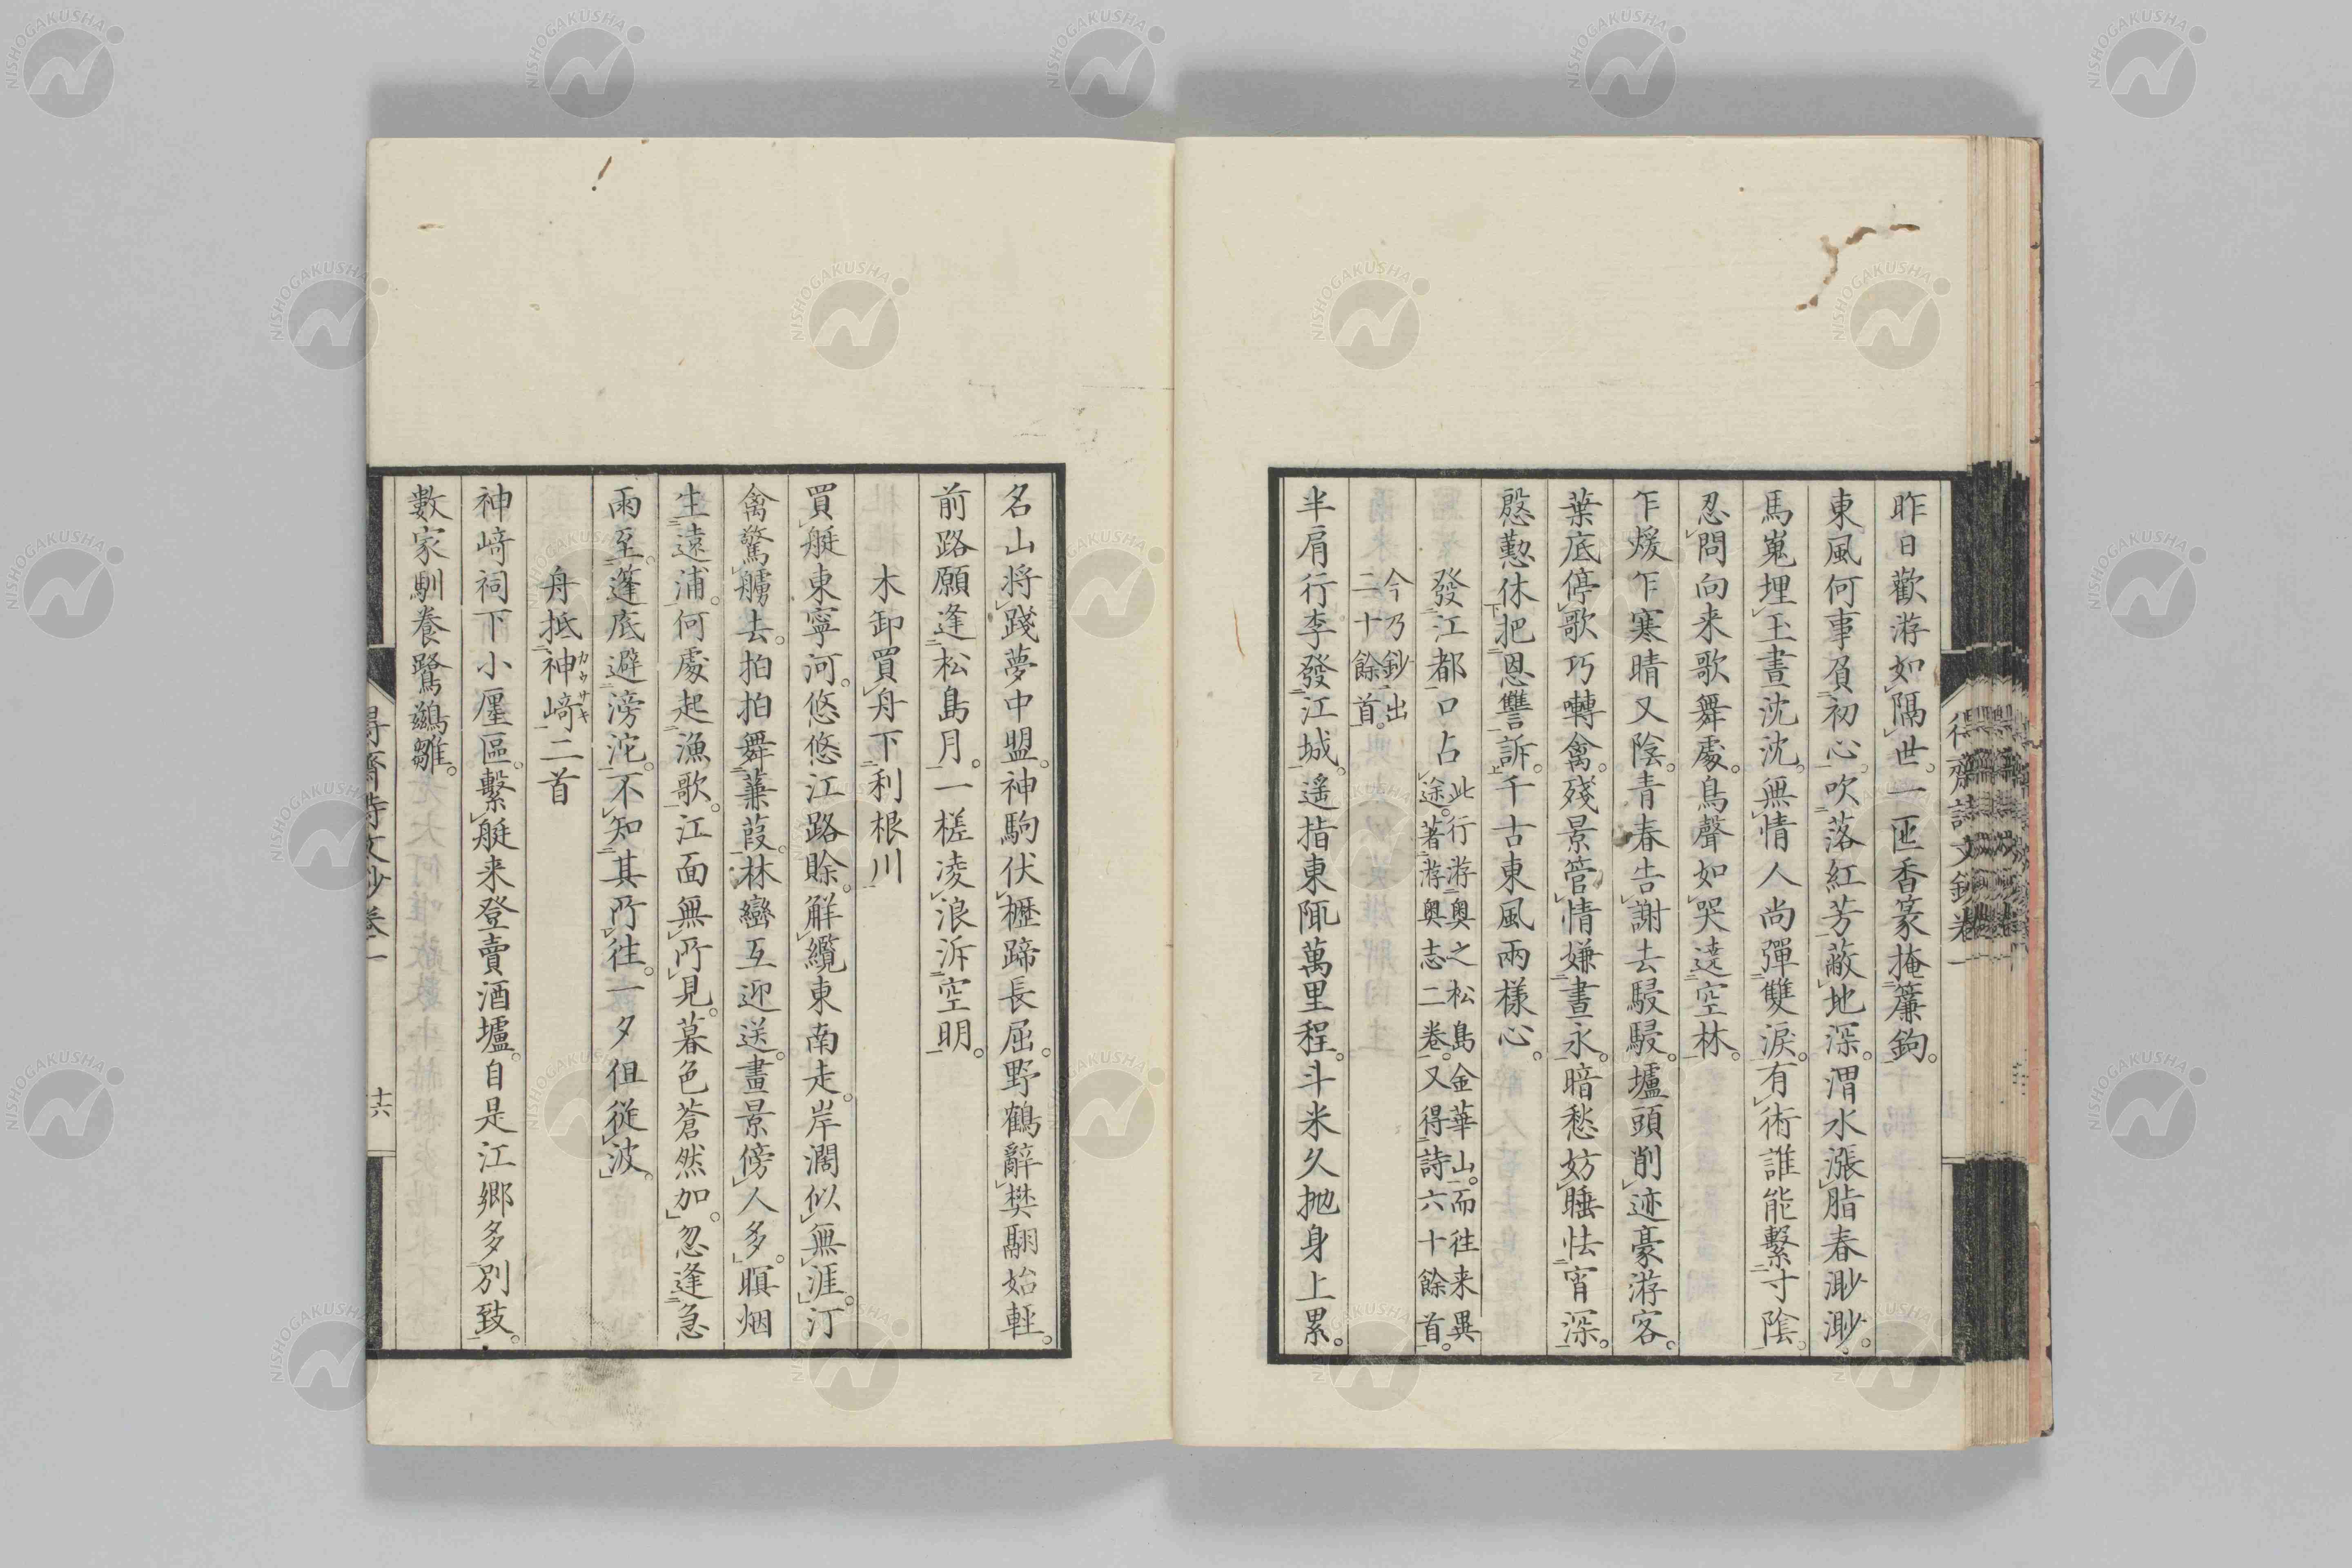 昨日歡游如隔世。一匝香篆掩簾鉤。
東風何事負初心。吹落紅芳蔽地深。渭水漲脂春渺渺。
馬嵬埋玉晝沈沈。無情人尚彈雙淚。有術誰能繫寸陰。
忍問向来歌舞處。鳥聲如哭遶空林。
乍煖乍寒晴又陰。青春告謝去駸駸。壚頭削迹豪游客。
葉底停歌巧囀禽。殘景管情嫌晝永。暗愁妨睡怯宵深。
慇懃休把恩讐訴。千古東風兩樣心。
發江都口占
此行游奥之松島金華山。而往来異
途。著游奥志二卷。又得詩六十餘首。
今乃鈔出
二十餘首。
半肩行李發江城。遥指東陬萬里程。斗米久抛身上累。
名山將踐夢中盟。神駒伏櫪蹄長屈。野鶴辭樊翮始輕。
前路願逢松島月。一槎凌浪泝空明。
木卸買舟下利根川
買艇東寧河。悠悠江路賒。解纜東南走。岸濶似無涯。汀
禽驚艣去。拍拍舞蒹葭。林巒互迎送。畫景傍人多。暝烟
生遠浦。何處起漁歌。江面無所見。暮色蒼然加。忽逢急
雨至。篷底避滂沱。不知其所往。一夕但從波。
舟抵神﨑二首
カウサキ
神﨑祠下小廛區。繫艇来登賣酒壚。自是江郷多別致。
數家馴養鷺鷀雛。
得齋詩文鈔卷一
十六